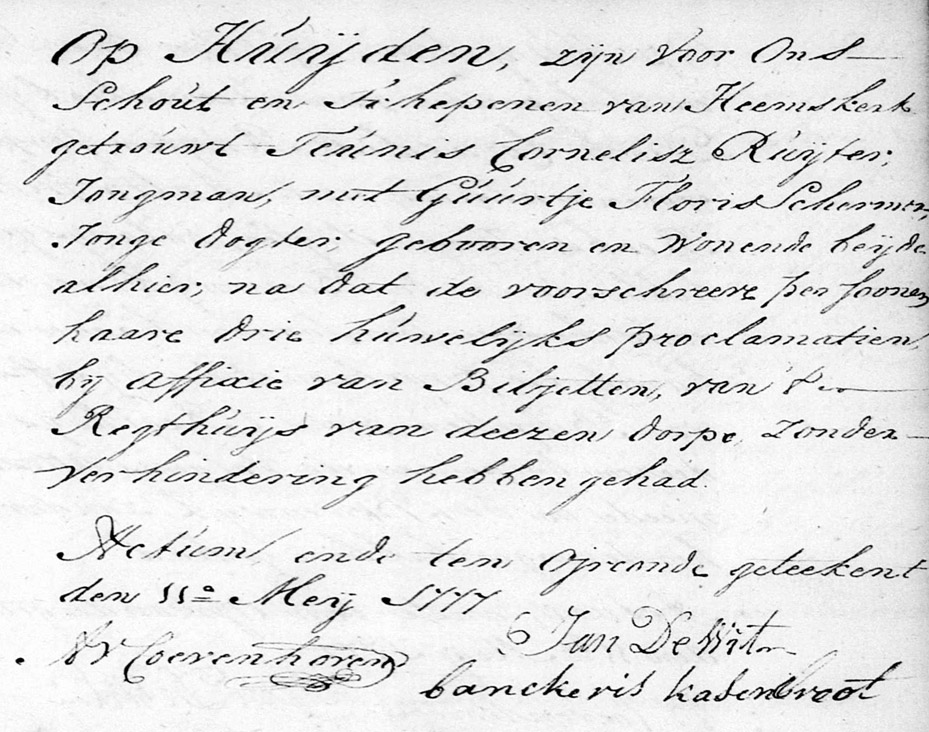 Op Huijden, zijn voor Ons
Schout en Schepenen van Heemskerk
getrouwt Teunis Cornelisz Ruyter,
Jongman, met Guurtje Floris Schermer,
Jonge dogter, gebooren en Wonende beijde
alhier, na dat de voorschreeve persoonen
haare drie huwelijks proclamatien,
by affixie van Biljetten, van 't
Regthuijs van deezen dorpe, zonder
verhindering hebben gehad.
Actum, ende ten Oirconde geteekent
den 11º Meij 1777
Jan De Wit
AV Coevenhoven
banckeris kasenbroot